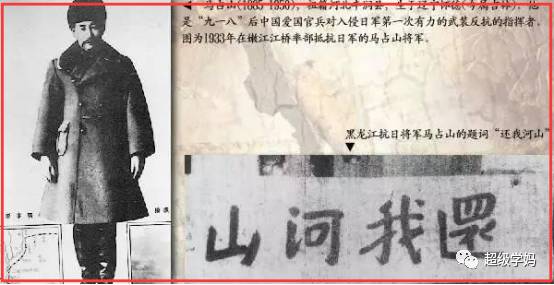 马占山(1885-1950)，祖籍河北丰润县，生于辽宁怀德(今属吉林)，他
是“九一八”后中国爱国官兵对入侵日军第一次有力的武装反抗的指挥者。
图为1933年在嫩江江桥率部抵抗日军的马占山将军。
黑龙江抗日将军马占山的题词“还我河山”
山河我還
超级学妈